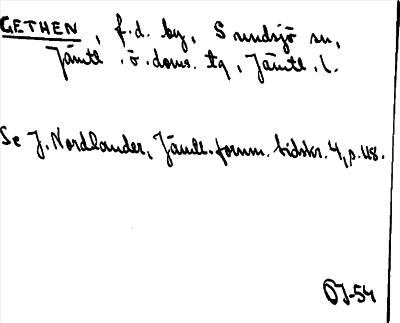 GETHEN, f.d. by, Sundsjö sn,
Jämtl. ö. doms. tg, Jämtl. l.
Se J. Nordlander, Jämtl. fornm. tidskr. 4, s. 118.
OJ-54